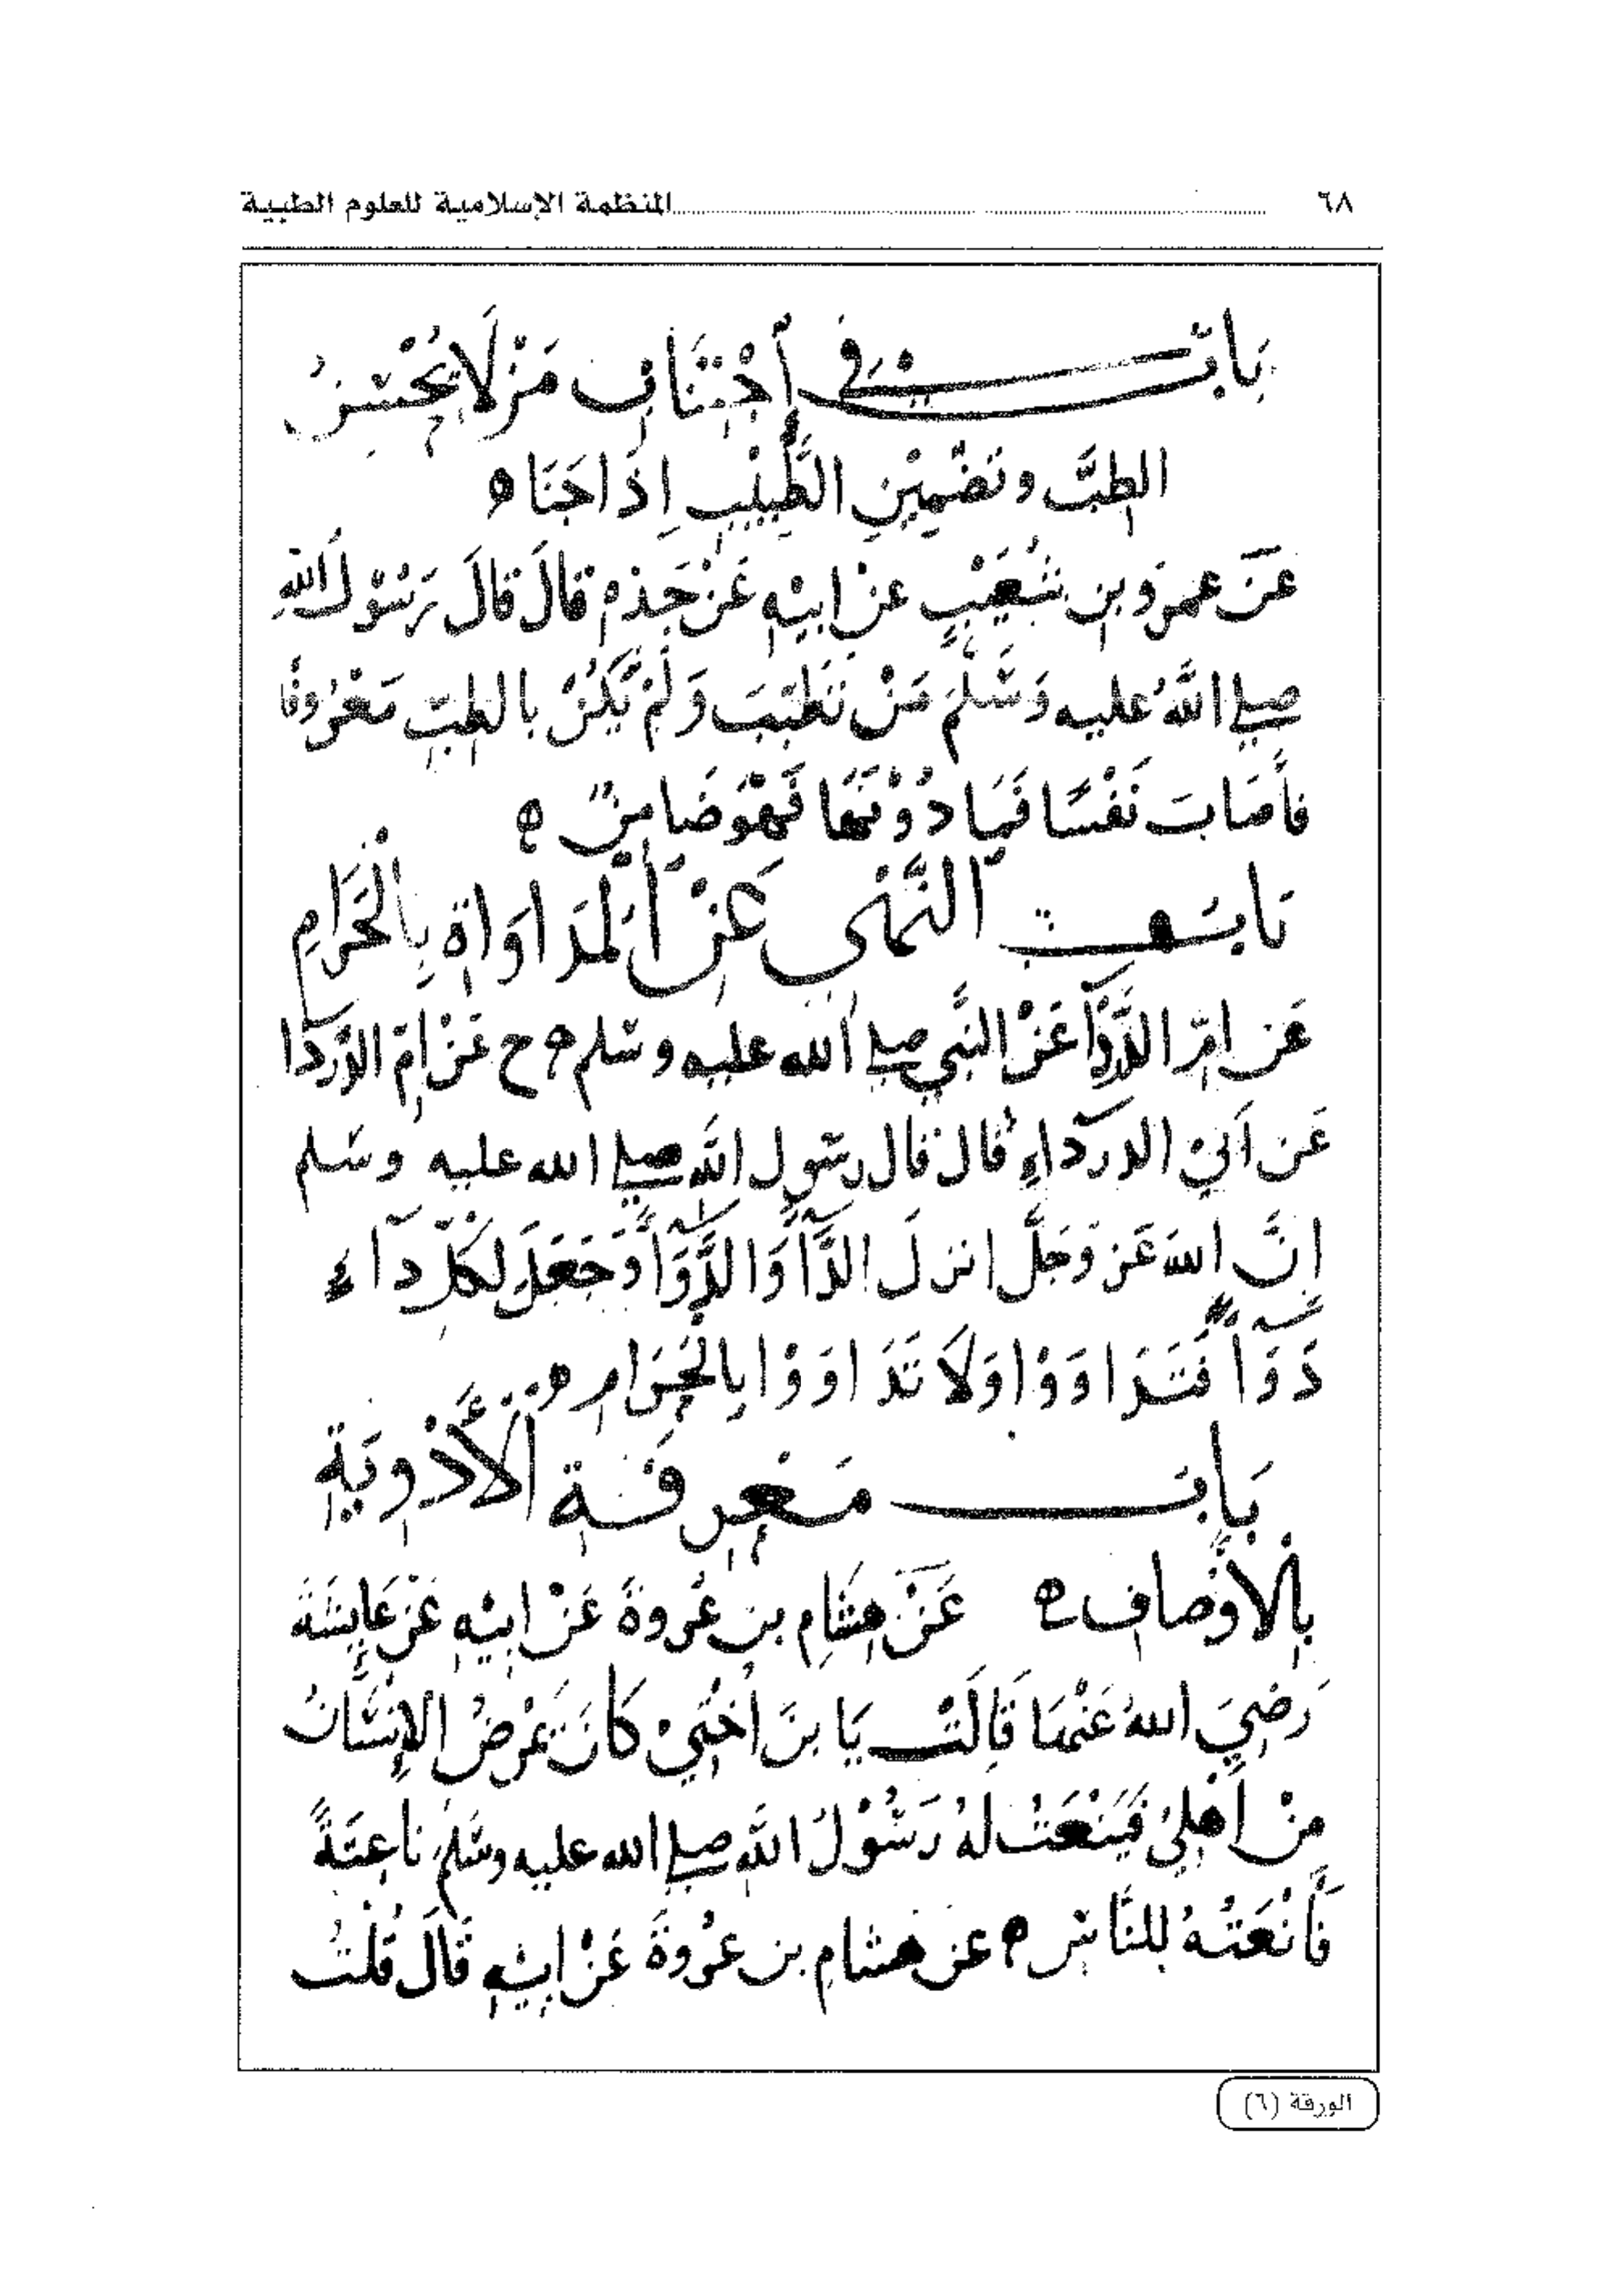 ٦٨ المنظمة الإسلامية للعلوم الطبية
بَابٌ في اِجْتِنَابِ مَنْ لَا يُحْسِنُ
الطِبَّ وتَضْمِيْنِ الطَّبِيْبِ اِذَا جَنَا ه
عَن عمرو بن شُعَيْبٍ عن ابيْهِ عَنْ جَدِّهِ قالَ قالَ رَسُوْلُ اللهِ
صلى اللهُ عليه وَسَلَّمَ مَنْ تَطَبَّبَ وَلَمْ يَكُنْ بالطِبِّ مَعْرُوفًا
فأَصَابَ نَفْسًا فَمَا دُوْنَهَا فَهْوَ ضَامِنٌ ه
بابُ النَّهْى عَنْ اَلمَدَاوَاةِ بِالْحَرَامِ
عَن اُمِّ الدَّرْدَآ عَنْ النَّبي صلى الله عليه وسلم ه ح عَنْ اُمِّ الدَّرْدَا
عَن اَبيْ الدردآءِ قال قال رسول الله صلى الله عليه وسَلم
اِنَّ اللهَ عَز وَجَلَّ انزلَ الدَّآ وَالدَّوَآ وَجَعَلَ لِكُلِّ دآءٍ
دَوَآً فَتَدَاوَوْا وَلَا تَدَاوَوْا بِالحَرَامِ ه
بَابُ مَعْرِفَةِ اَلْأَدْوِيَةِ
بِالْاَوْصَافِ ه عَنْ هشَامِ بن عُروةَ عَنْ ابيْهِ عَنْ عَايِشَةَ
رَضِيَ اللهُ عَنْهَا قَالَتْ يَا بنَ اُخْتِيْ كَانَ يَمْرَضُ الاِنْسَانُ
مِنْ اَهْلِيْ فَيَنْعَتُ لهُ رَسُوْلُ اللهِ صلى الله عليه وسَلَّم نَاعِتَةً
فَأَنْعَتُهُ لِلنَّاسِ ه عن هشامِ بن عُرْوةَ عَنْ ابيْهِ قَالَ قُلْتُ
الورقة (٦)